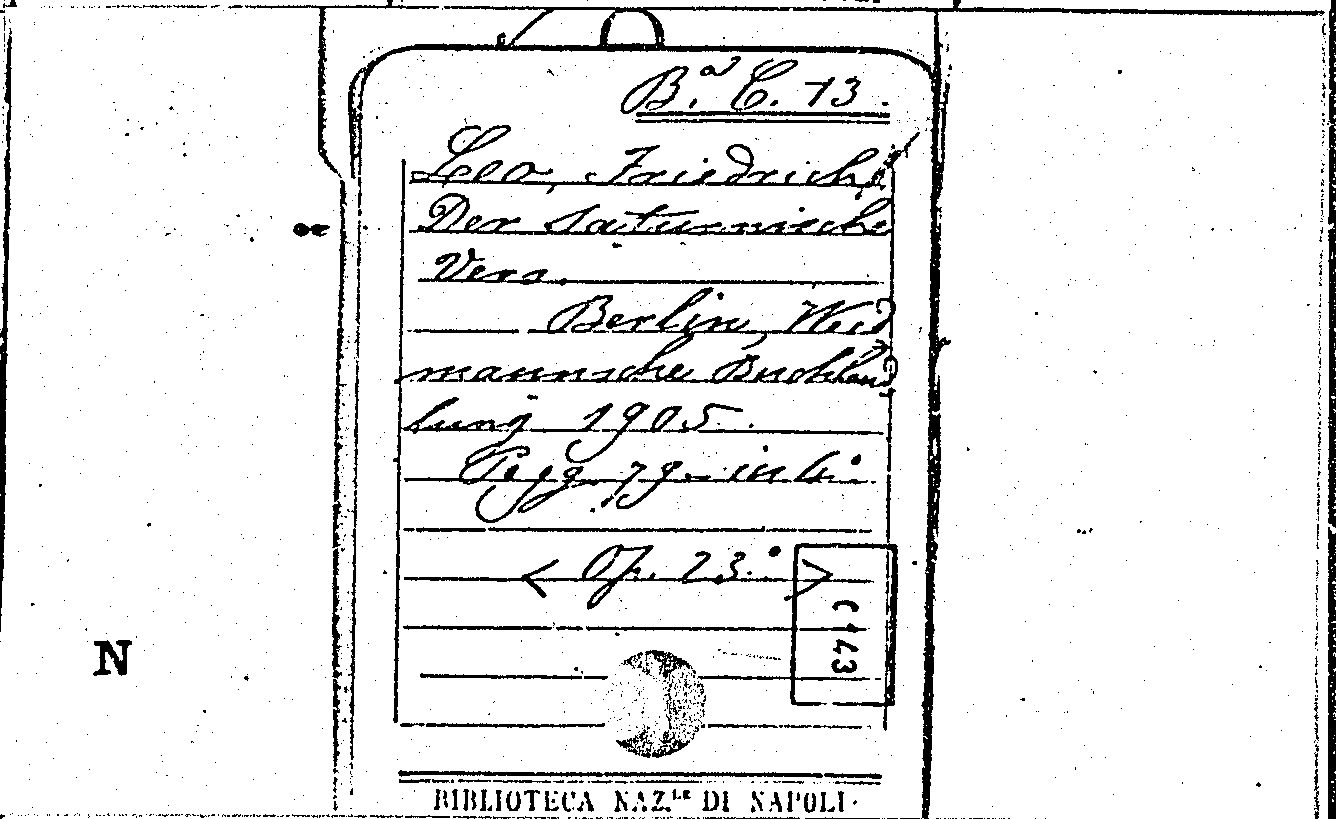 B.ª C. 13.
Leo, Friedrich
Der saturnische
Vers.
Berlin, Weid
mannsche Buchhand
lung 1905.
Pagg. 79. in 4.º
< Op. 23.º >
C 443
N
BIBLIOTECA NAZ.LE DI NAPOLI